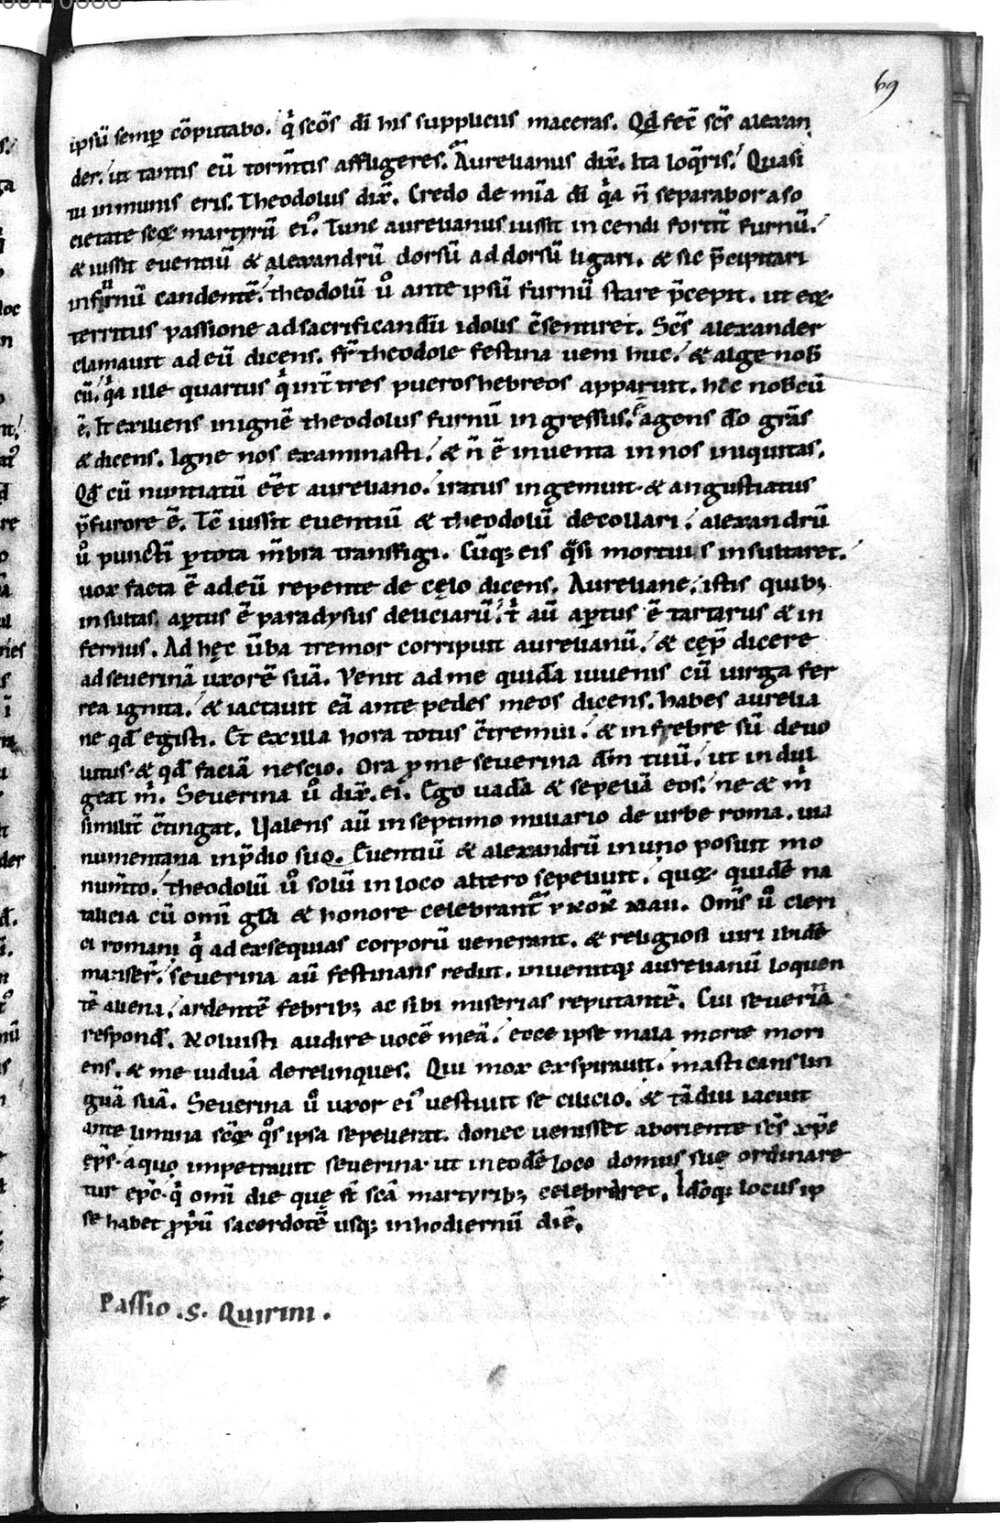 69
ipsū semp cōputabo. q͛ sc̄os dī his suppliciis maceras. Qd̄ fec̄ sc̄s alexan
der. ut tantis eū torm̄tis affligeres. Aurelianus dix̄. Ita loq̄ris. Quasi
tu inmunis eris. Theodolus dix̄. Credo de mīa dī q͛a n̄ separabor a so
cietate scōꝝ martyrū ei᾽. Tunc aurelianus iussit incendi fortit̄ furnū.
& iussit eventiū & alexandrū dorsū ad dorsū ligari. & sic p̄cipitari
in furnū candentē. theodolū ů ante ipsū furnū stare p̄cepit. ut eoꝝ
territus passione ad sacrificandū idolis c̄sentiret. Sc̄s alexander
clamauit ad eū dicens. fr̄ theodole festina ueni huc. & alge nob̄
cū. q͛a ille quartus q͛ int̄ tres pueros hebreos apparuit. hic nob̄cū
ē. It exiliens in ignē theodolus furnū ingressus. agens d̄o grās
& dicens. Igne nos examinasti. & n̄ ē inuenta in nos iniquitas.
Qd̄ cū nuntiatū ēet aureliano. iratus ingemuit. & angustiatus
p̄ furore ē. Tc̄ iussit euentiū & theodolū decollari. alexandrū
ů punctī ꝑ tota m̄bra transfigi. Cūq; eis q̄si mortuis insultaret.
uox facta ē ad eū repente de cęlo dicens. Aureliane. istis quib;
insultas, aꝑtus ē paradysus deliciarū. t͛ aū aꝑtus ē tartarus & in
fernus. Ad hęc ūba tremor corripuit aurelianū. & cęp̄ dicere
ad seuerinā uxorē suā. Venit ad me quidā iuuenis cū uirga fer
rea ignita. & iactauit eā ante pedes meos dicens. habes aurelia
ne qd̄ egisti. Et ex illa hora totus c̄tremui. & in frebre sū deuo
lutus. & qd̄ faciā nescio. Ora ꝓ me seuerina dn̄m tuū. ut indul
geat m͛. Seuerina ů dix̄. ei. Ego uadā & sepeliā eos. ne & m͛
similit̄ c̄tingat. Valens aū in septimo miliario de urbe roma. uia
numentana in p̄dio suo. Euentiū & alexandrū in uno posuit mo
num̄to. theodolū ů solū in loco altero sepeliuit. quoꝝ quidē na
talicia cū omī gl̄a & honore celebrant̄ v non̄ maii. Om̄s ů cleri
ci romani q͛ ad exsequias corporū uenerant. & religiosi uiri ibidē
manser̄. seuerina aū festinans rediit. inuenitq; aurelianū loquen
tē aliena. ardentē febrib; ac sibi miserias reputantē. Cui seuerina
respond̄. Noluisti audire uocē meā. ecce ipse mala morte mori
ens. & me uiduā derelinques. Qui mox exspirauit. masticans lin
guā suā. Seuerina ů uxor ei᾽ uestiuit se cilicio. & tādiu iacuit
ante limina sc̄oꝝ q͛s ipsa sepelierat. donec uenisset ab oriente sc̄s xp̄c
ep̄s. a quo impetrauit seuerina. ut in eodē loco domus suę ordinare
tur ep̄c. q͛ omī die que st̄ sc̄a martyrib; celebraret. Id̄oq; locus ip
se habet ꝓp̄ū sacerdotē usq; in hodiernū diē.
Passio .S. Quirini.